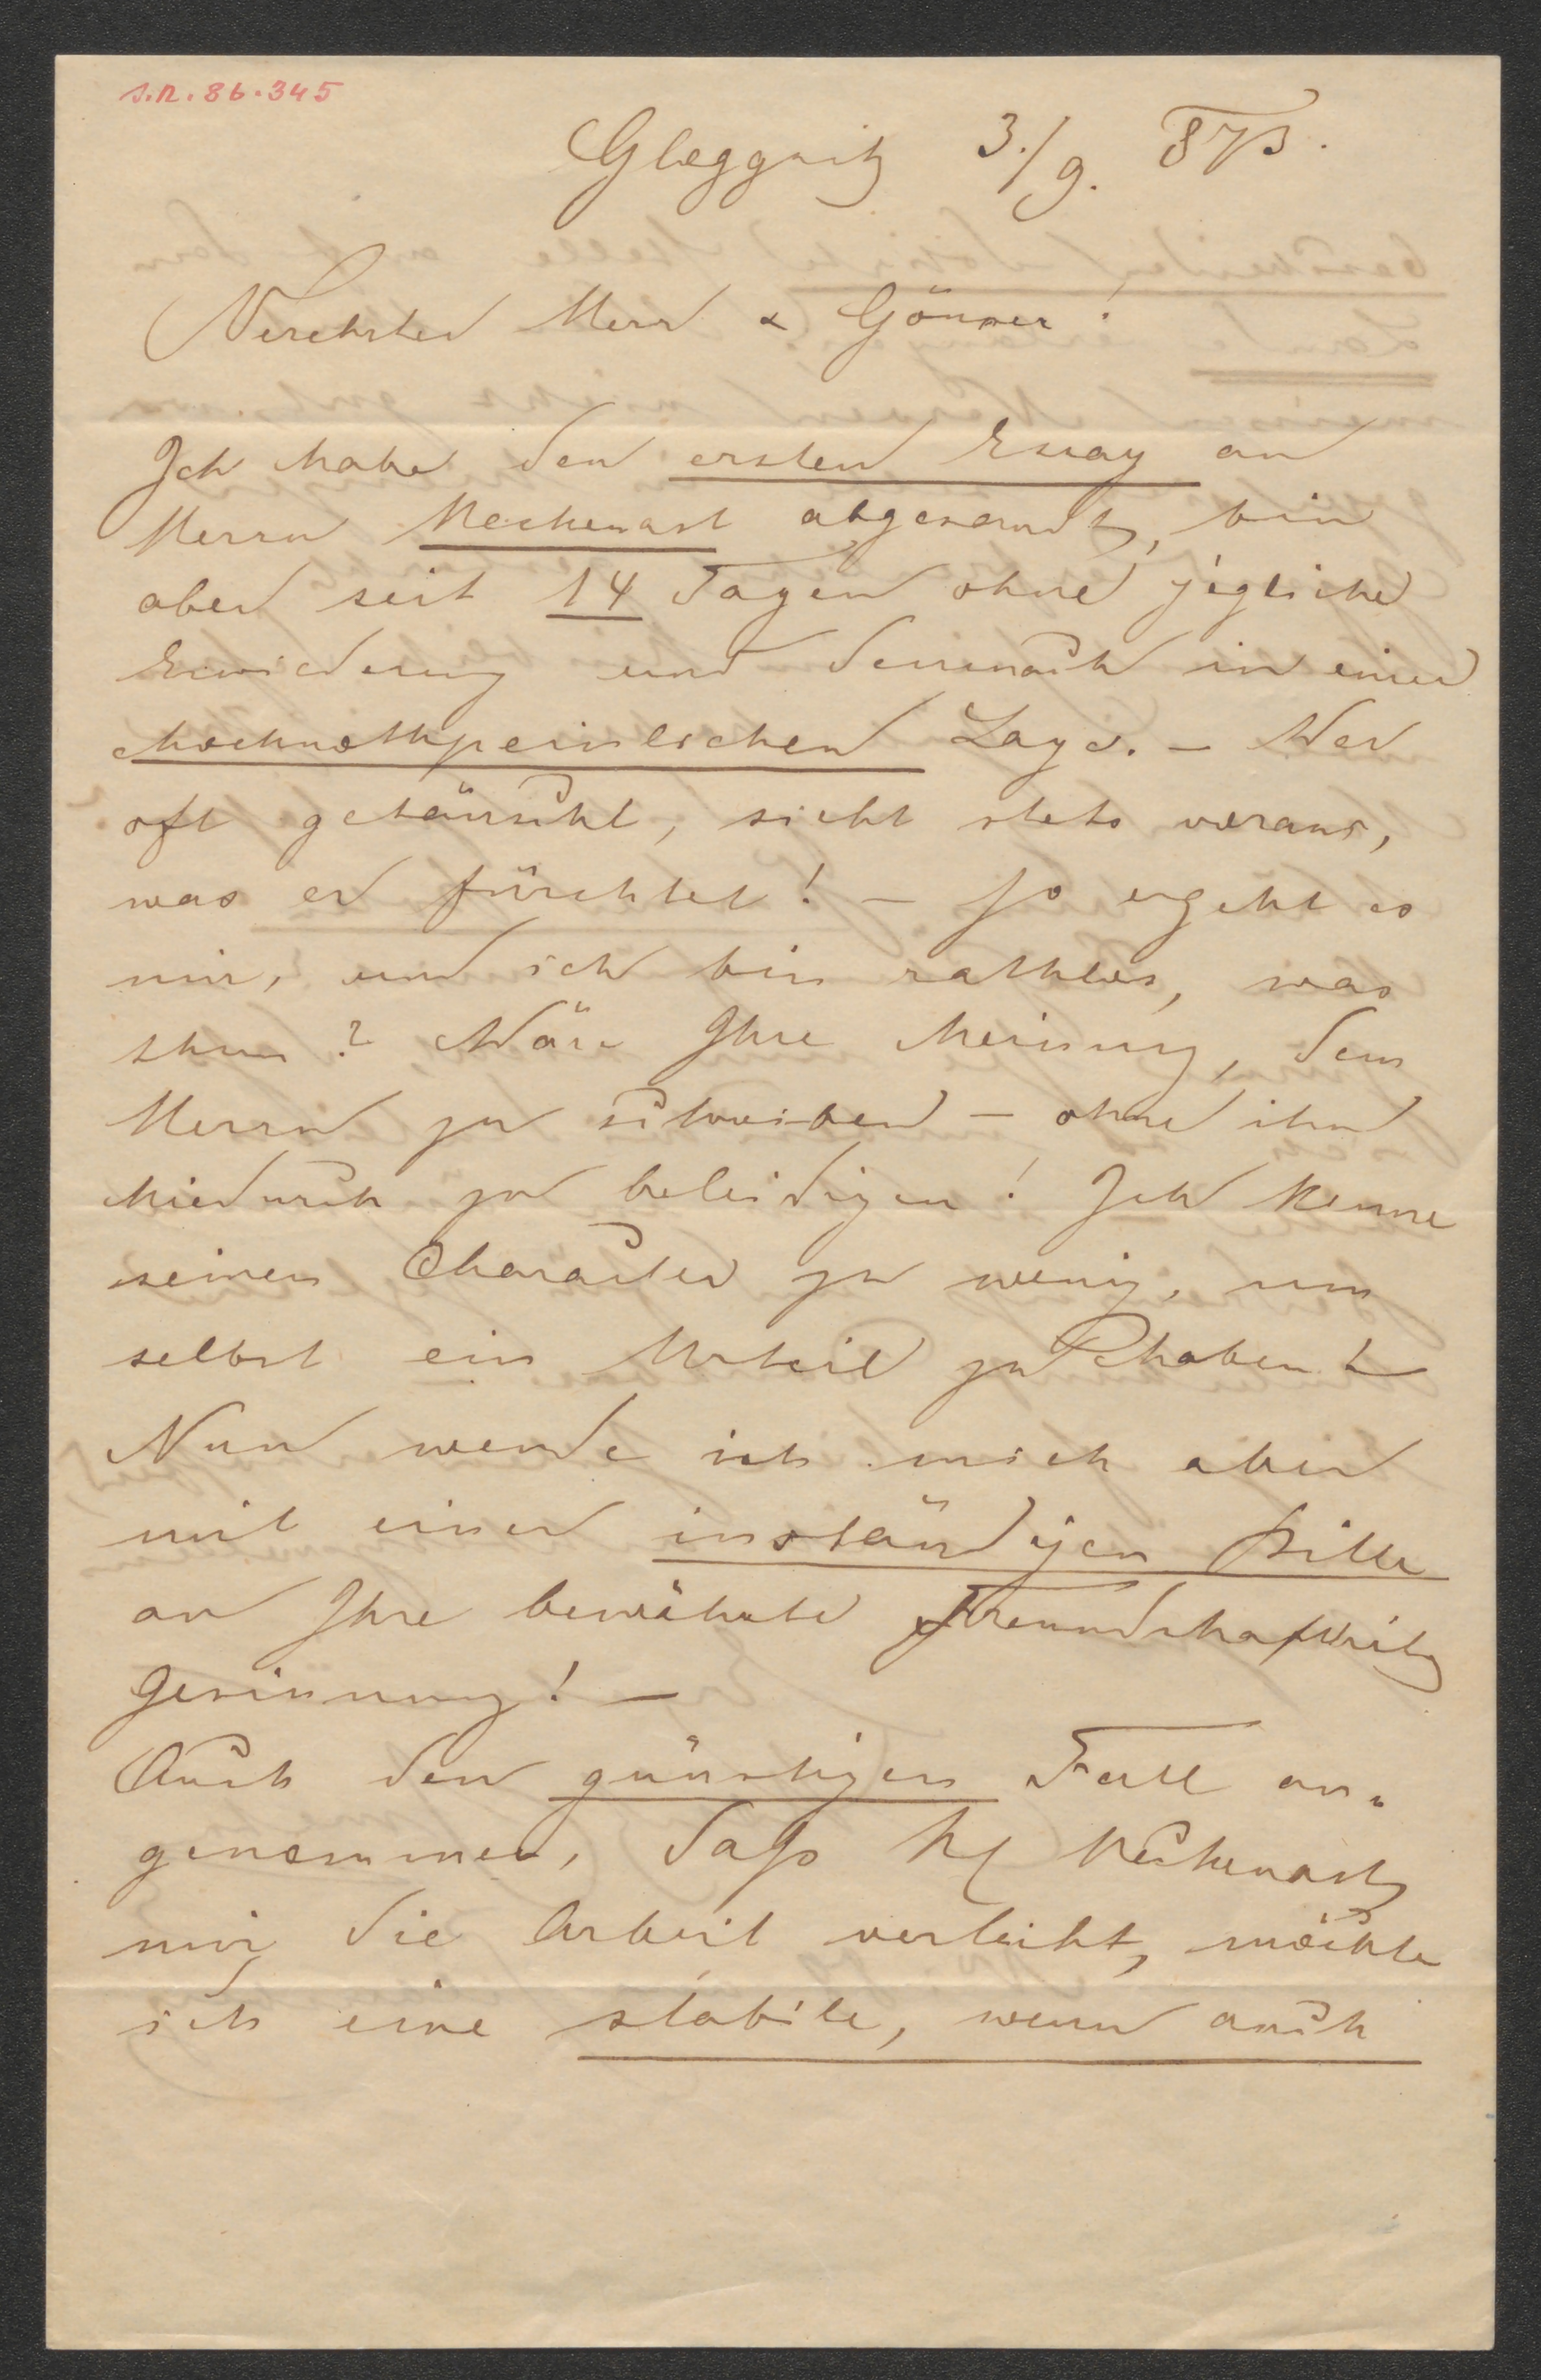 I.N. 86.345
Gloggnitz 3./9. 873.
Verehrter Herr & Gönner!
Ich habe den ersten Essay an
Herrn Heckenast abgesandt, bin
aber seit 14 Tagen ohne jegliche
Erwiderung und demnach in einer
hochnothpeinlichen Lage. – Wer
oft getäuscht, sieht stets voraus,
was er fürchtet! – So ergeht es
mir, und ich bin rathlos, was
thun? Wäre Ihre Meinung, dem
Herrn zu schreiben – ohne ihn
hiedurch zu beleidigen! Ich kenne
seinen Character zu wenig, um
selbst ein Urteil zu haben!
Nun wende ich mich aber
mit einer inständigen Bitte
an Ihre bewährte Freundschaftliche
Gesinnung! –
Auch den günstigen Fall an-
genommen, daß H. Heckenast
mir die Arbeit verleiht, möchte
ich eine stabile, wenn auch